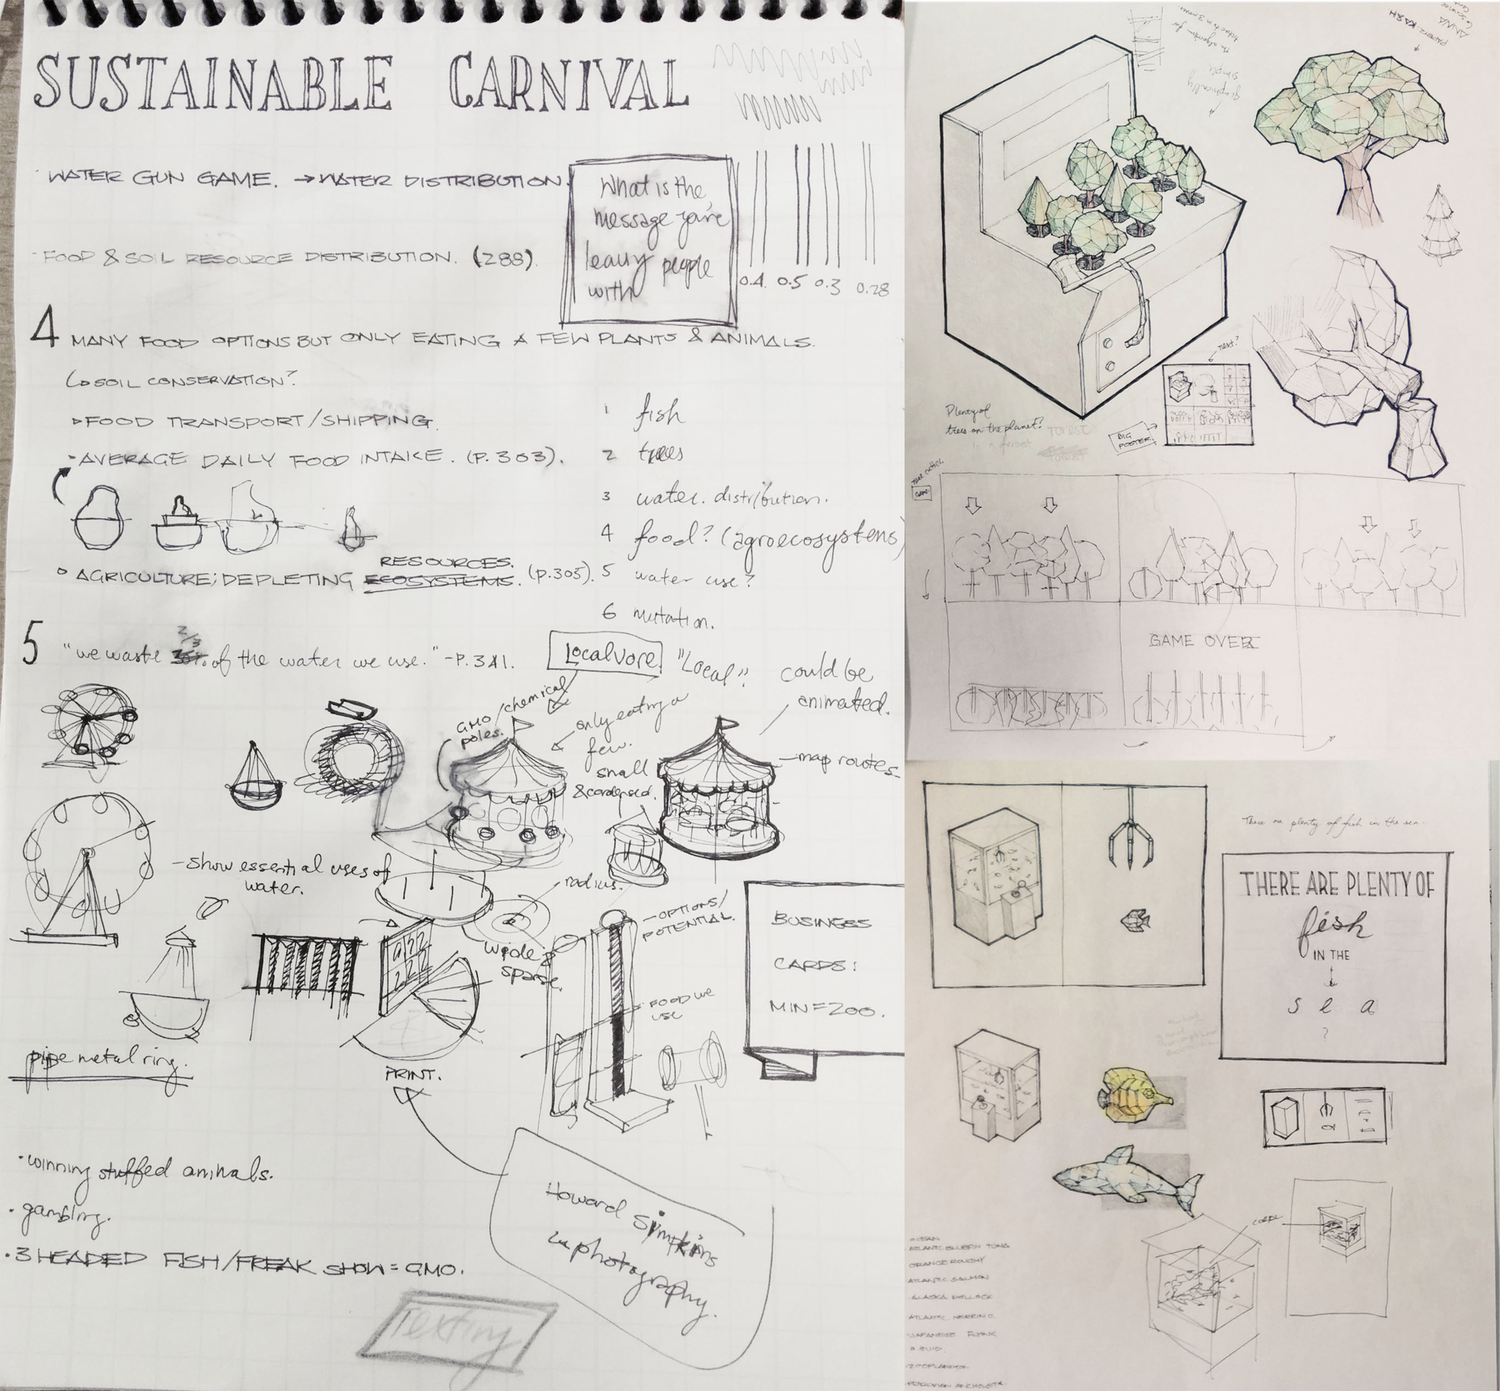 SUSTAINABLE CARNIVAL
· WATER GUN GAME. → WATER DISTRIBUTION.
What is the
message you're
leaving people
with
· FOOD & SOIL RESOURCE DISTRIBUTION. (288).
0.4 0.5 0.3 0.28
4 MANY FOOD OPTIONS BUT ONLY EATING A FEW PLANTS & ANIMALS.
SOIL CONSERVATION?
FOOD TRANSPORT/SHIPPING.
AVERAGE DAILY FOOD INTAKE. (P. 303).
RESOURCES.
AGRICULTURE; DEPLETING ECOSYSTEMS. (P.305).
1 fish
2 trees
3 water. distribution.
4 food? (agroecosystems)
5 water use?
6 mutation.
5 "we waste 2/3 of the water we use." -P.341.
Localvore "Local"?
could be
animated.
GMO/chemical
poles.
only eating a
few.
small
& condensed.
map routes
-show essential uses of
water.
radius.
wide &
sparse.
-OPTIONS/
POTENTIAL.
FOOD WE
USE
BUSINESS
CARDS:
MIN=200.
pipe metal ring.
PRINT.
· winning stuffed animals.
· gambling.
· 3 HEADED FISH/FREAK SHOW = GMO.
Howard Simpkins
photography.
Texting
simple
graphically
Plenty of
trees on the planet?
BIG
POSTER
GAME
GAME OVER
There are plenty of fish in the sea.
THERE ARE PLENTY OF
fish
IN THE
sea
?
ATLANTIC BLUEFIN TUNA
ORANGE ROUGHY
ATLANTIC SALMON
ALASKA POLLOCK
ATLANTIC HERRING
SQUID
ZOOPLANKTON
PERUVIAN ANCHOVETA